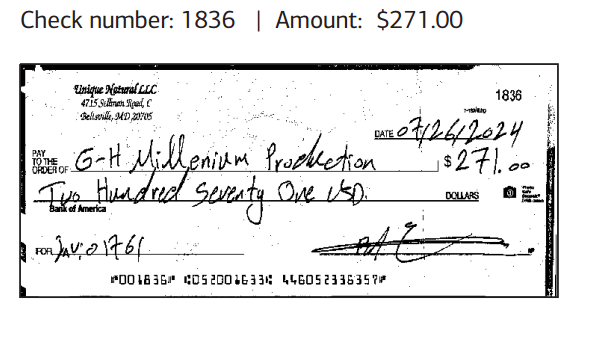 Check number: 1836 | Amount: $271.00
Unique Natural LLC
4715 Sellman Road, C
Beltsville, MD 20705
1836
DATE 07/26/2024
PAY TO THE ORDER OF G-H Millenium Production $271.00
Two Hundred Seventy One USD. DOLLARS
Bank of America
FOR
⑈001836⑈ ⑆052001633⑆ 446052336357⑈